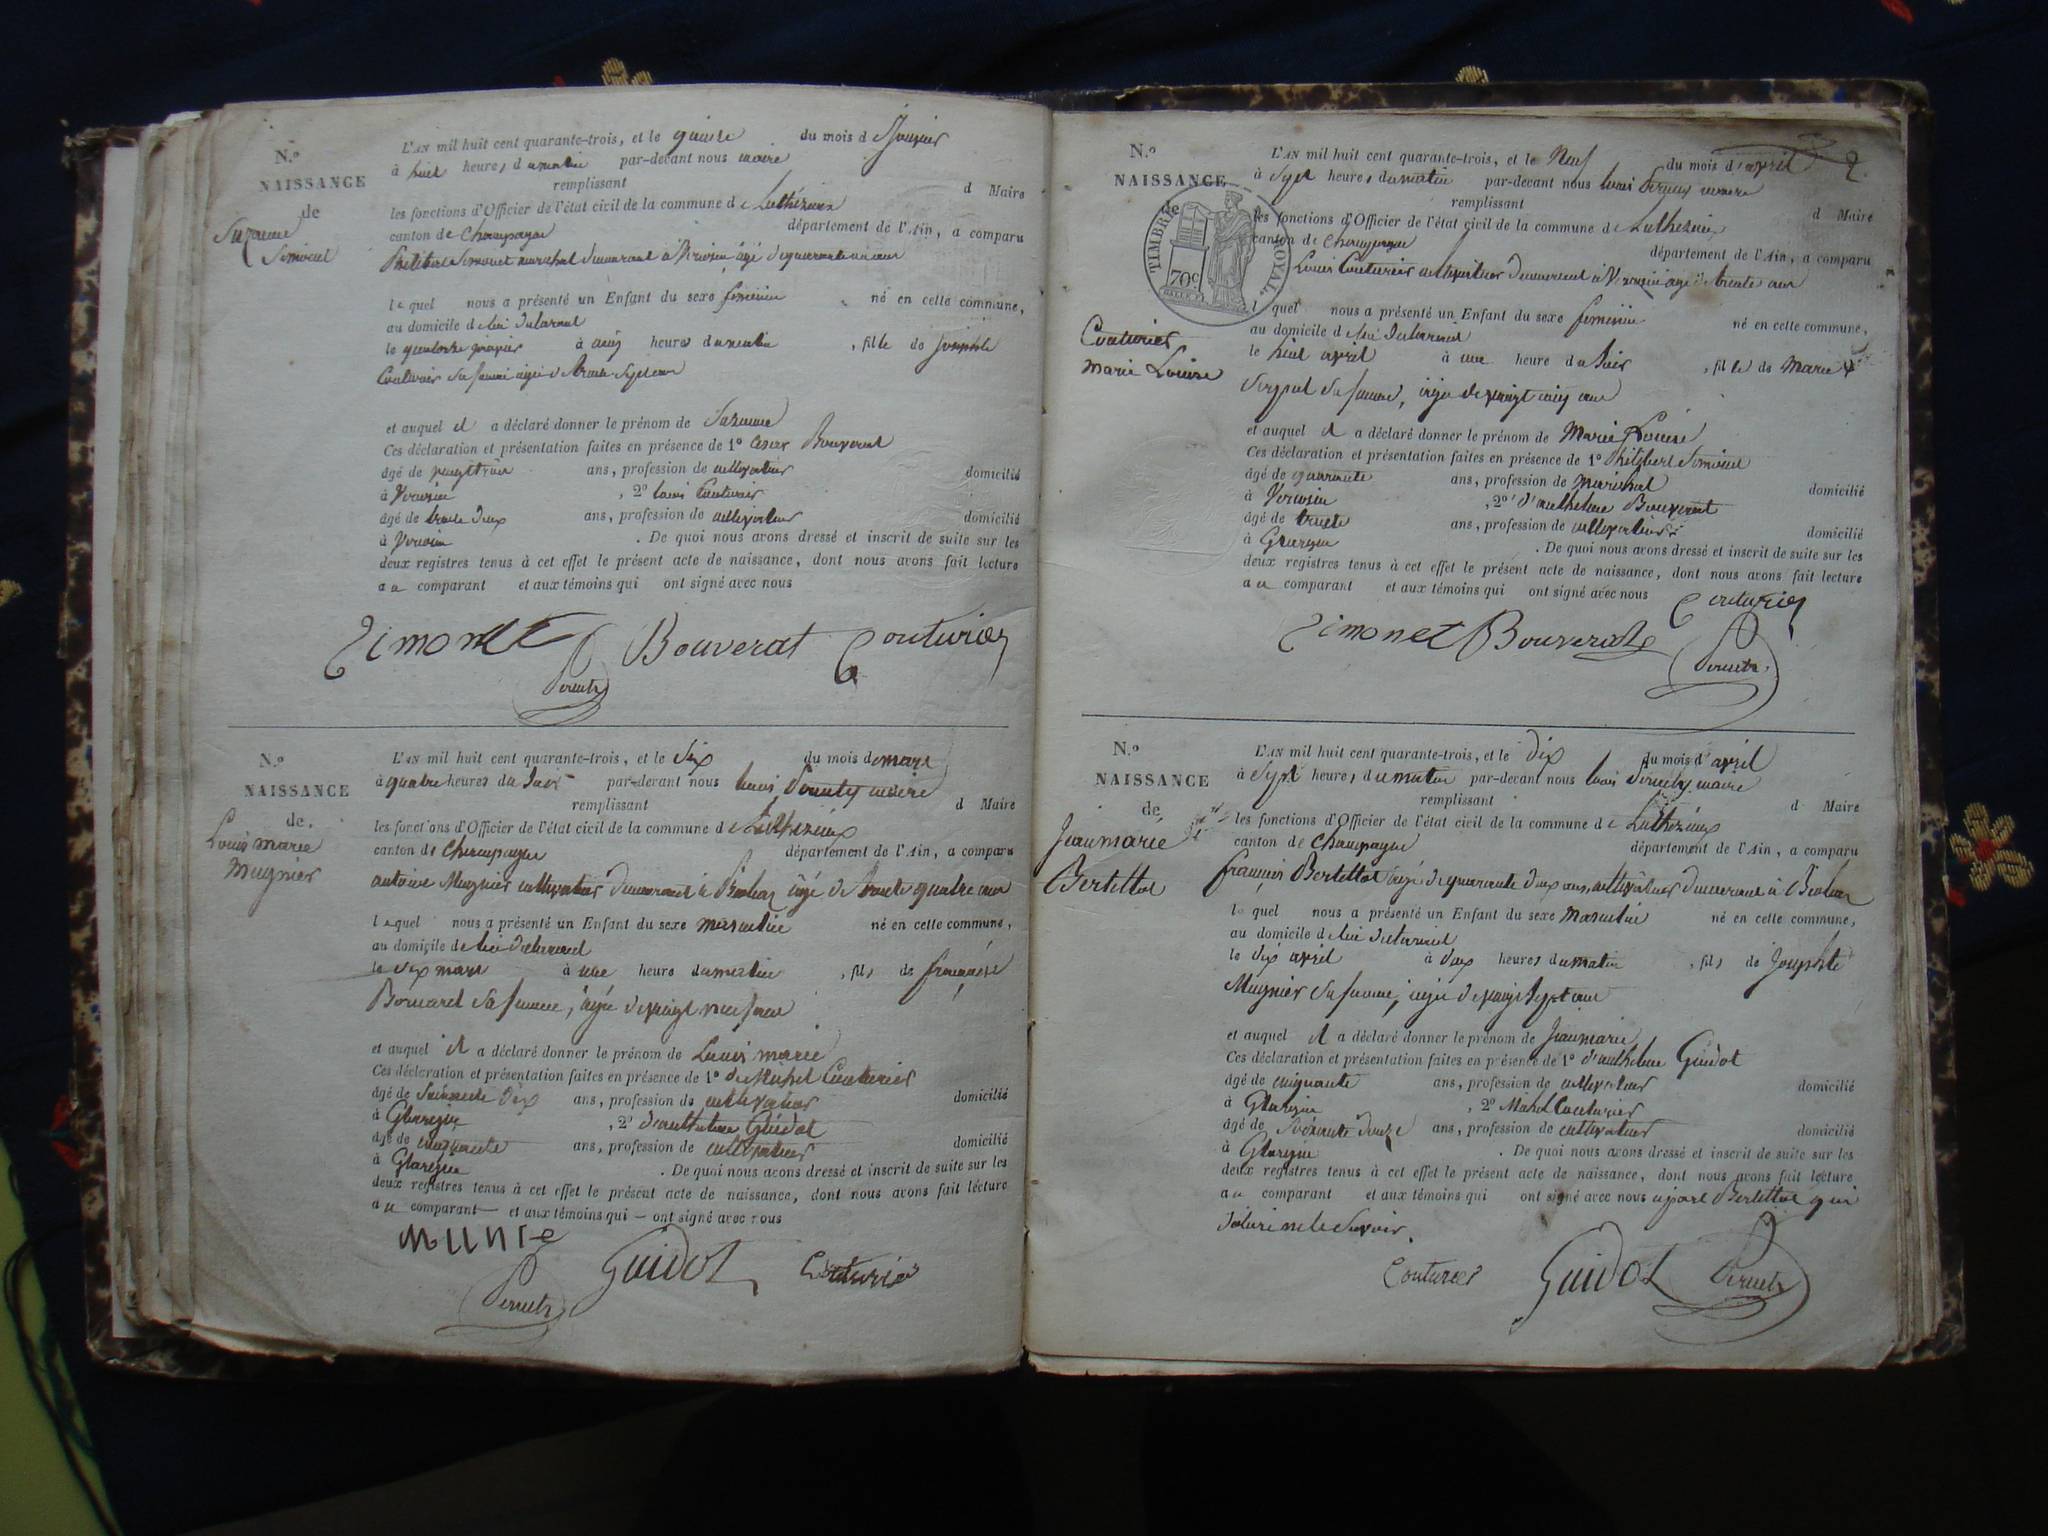 N.o
NAISSANCE
de
Suzanne
Simonet
L'AN mil huit cent quarante-trois, et le quinze du mois d Janvier
à huit heures du matin par-devant nous maire
remplissant d Maire
les fonctions d'Officier de l'état civil de la commune de Luthézieu
canton de Champagne département de l'Ain, a comparu
Philibert Simonet marechal demeurant à Vovusin âgé de quarante
lequel nous a présenté un Enfant du sexe féminin né en cette commune,
au domicile de lui déclarant
le quatorze janvier à cinq heures du matin, fille de Josephte
Couturier sa femme âgée de trente sept ans
et auquel il a déclaré donner le prénom de Suzanne
Ces déclaration et présentation faites en présence de 1o Bouverat
âgé de vingt trois ans, profession de cultivateur domicilié
à, 2o Louis Couturier
âgé de trente deux ans, profession de cultivateur domicilié
à. De quoi nous avons dressé et inscrit de suite sur les
deux registres tenus à cet effet le présent acte de naissance, dont nous avons fait lecture
au comparant et aux témoins qui ont signé avec nous
Simonet Bouverat Couturier
N.o
NAISSANCE
de
Louis marie
Mugnier
L'AN mil huit cent quarante-trois, et le Six du mois de mars
à quatre heures du Soir par-devant nous Louis maire
remplissant d Maire
les fonctions d'Officier de l'état civil de la commune de Luthézieu
canton de Champagne département de l'Ain, a comparu
antoine Mugnier cultivateur demeurant à âgé de trente quatre ans
lequel nous a présenté un Enfant du sexe masculin né en cette commune,
au domicile de lui déclarant
le six mars à une heure du matin, fils de françoise
sa femme, âgée de vingt neuf ans
et auquel il a déclaré donner le prénom de Louis marie
Ces déclaration et présentation faites en présence de 1o Couturier
âgé de Soixante dix ans, profession de cultivateur domicilié
à, 2o d'anthelme Guidot
âgé de cinquante ans, profession de cultivateur domicilié
à. De quoi nous avons dressé et inscrit de suite sur les
deux registres tenus à cet effet le présent acte de naissance, dont nous avons fait lecture
au comparant et aux témoins qui ont signé avec nous
Guidot Couturier
2
N.o
NAISSANCE
de
TIMBRE ROYAL.
70c
Couturier
marie Louise
L'AN mil huit cent quarante-trois, et le Neuf du mois d'avril
à Sept heures du matin par-devant nous Louis maire
remplissant d Maire
les fonctions d'Officier de l'état civil de la commune de Luthézieu
canton de Champagne département de l'Ain, a comparu
Louis Couturier cultivateur demeurant à âgé de trente ans
lequel nous a présenté un Enfant du sexe féminin né en cette commune,
au domicile de lui déclarant
le huit avril à une heure du Soir, fille de Marie
sa femme, âgée de vingt cinq ans
et auquel il a déclaré donner le prénom de Marie Louise
Ces déclaration et présentation faites en présence de 1o Philibert Simonet
âgé de quarante ans, profession de maréchal domicilié
à, 2o d'anthelme Bouverat
âgé de trente ans, profession de cultivateur domicilié
à. De quoi nous avons dressé et inscrit de suite sur les
deux registres tenus à cet effet le présent acte de naissance, dont nous avons fait lecture
au comparant et aux témoins qui ont signé avec nous Couturier
Simonet Bouverat
N.o
NAISSANCE
de
Jeanmarie
Bertettot
L'AN mil huit cent quarante-trois, et le dix du mois d'avril
à Sept heures du matin par-devant nous Louis maire
remplissant d Maire
les fonctions d'Officier de l'état civil de la commune de Luthézieu
canton de Champagne département de l'Ain, a comparu
françois Bertettot âgé de quarante deux ans, cultivateur demeurant à
lequel nous a présenté un Enfant du sexe masculin né en cette commune,
au domicile de lui déclarant
le dix avril à deux heures du matin, fils de Josephte
Mugnier sa femme, âgée de vingt sept ans
et auquel il a déclaré donner le prénom de Jeanmarie
Ces déclaration et présentation faites en présence de 1o d'anthelme Guidot
âgé de cinquante ans, profession de cultivateur domicilié
à, 2o Couturier
âgé de Soixante douze ans, profession de cultivateur domicilié
à. De quoi nous avons dressé et inscrit de suite sur les
deux registres tenus à cet effet le présent acte de naissance, dont nous avons fait lecture
au comparant et aux témoins qui ont signé avec nous à part Bertettot qui
déclaré ne le Savoir.
Couturier Guidot